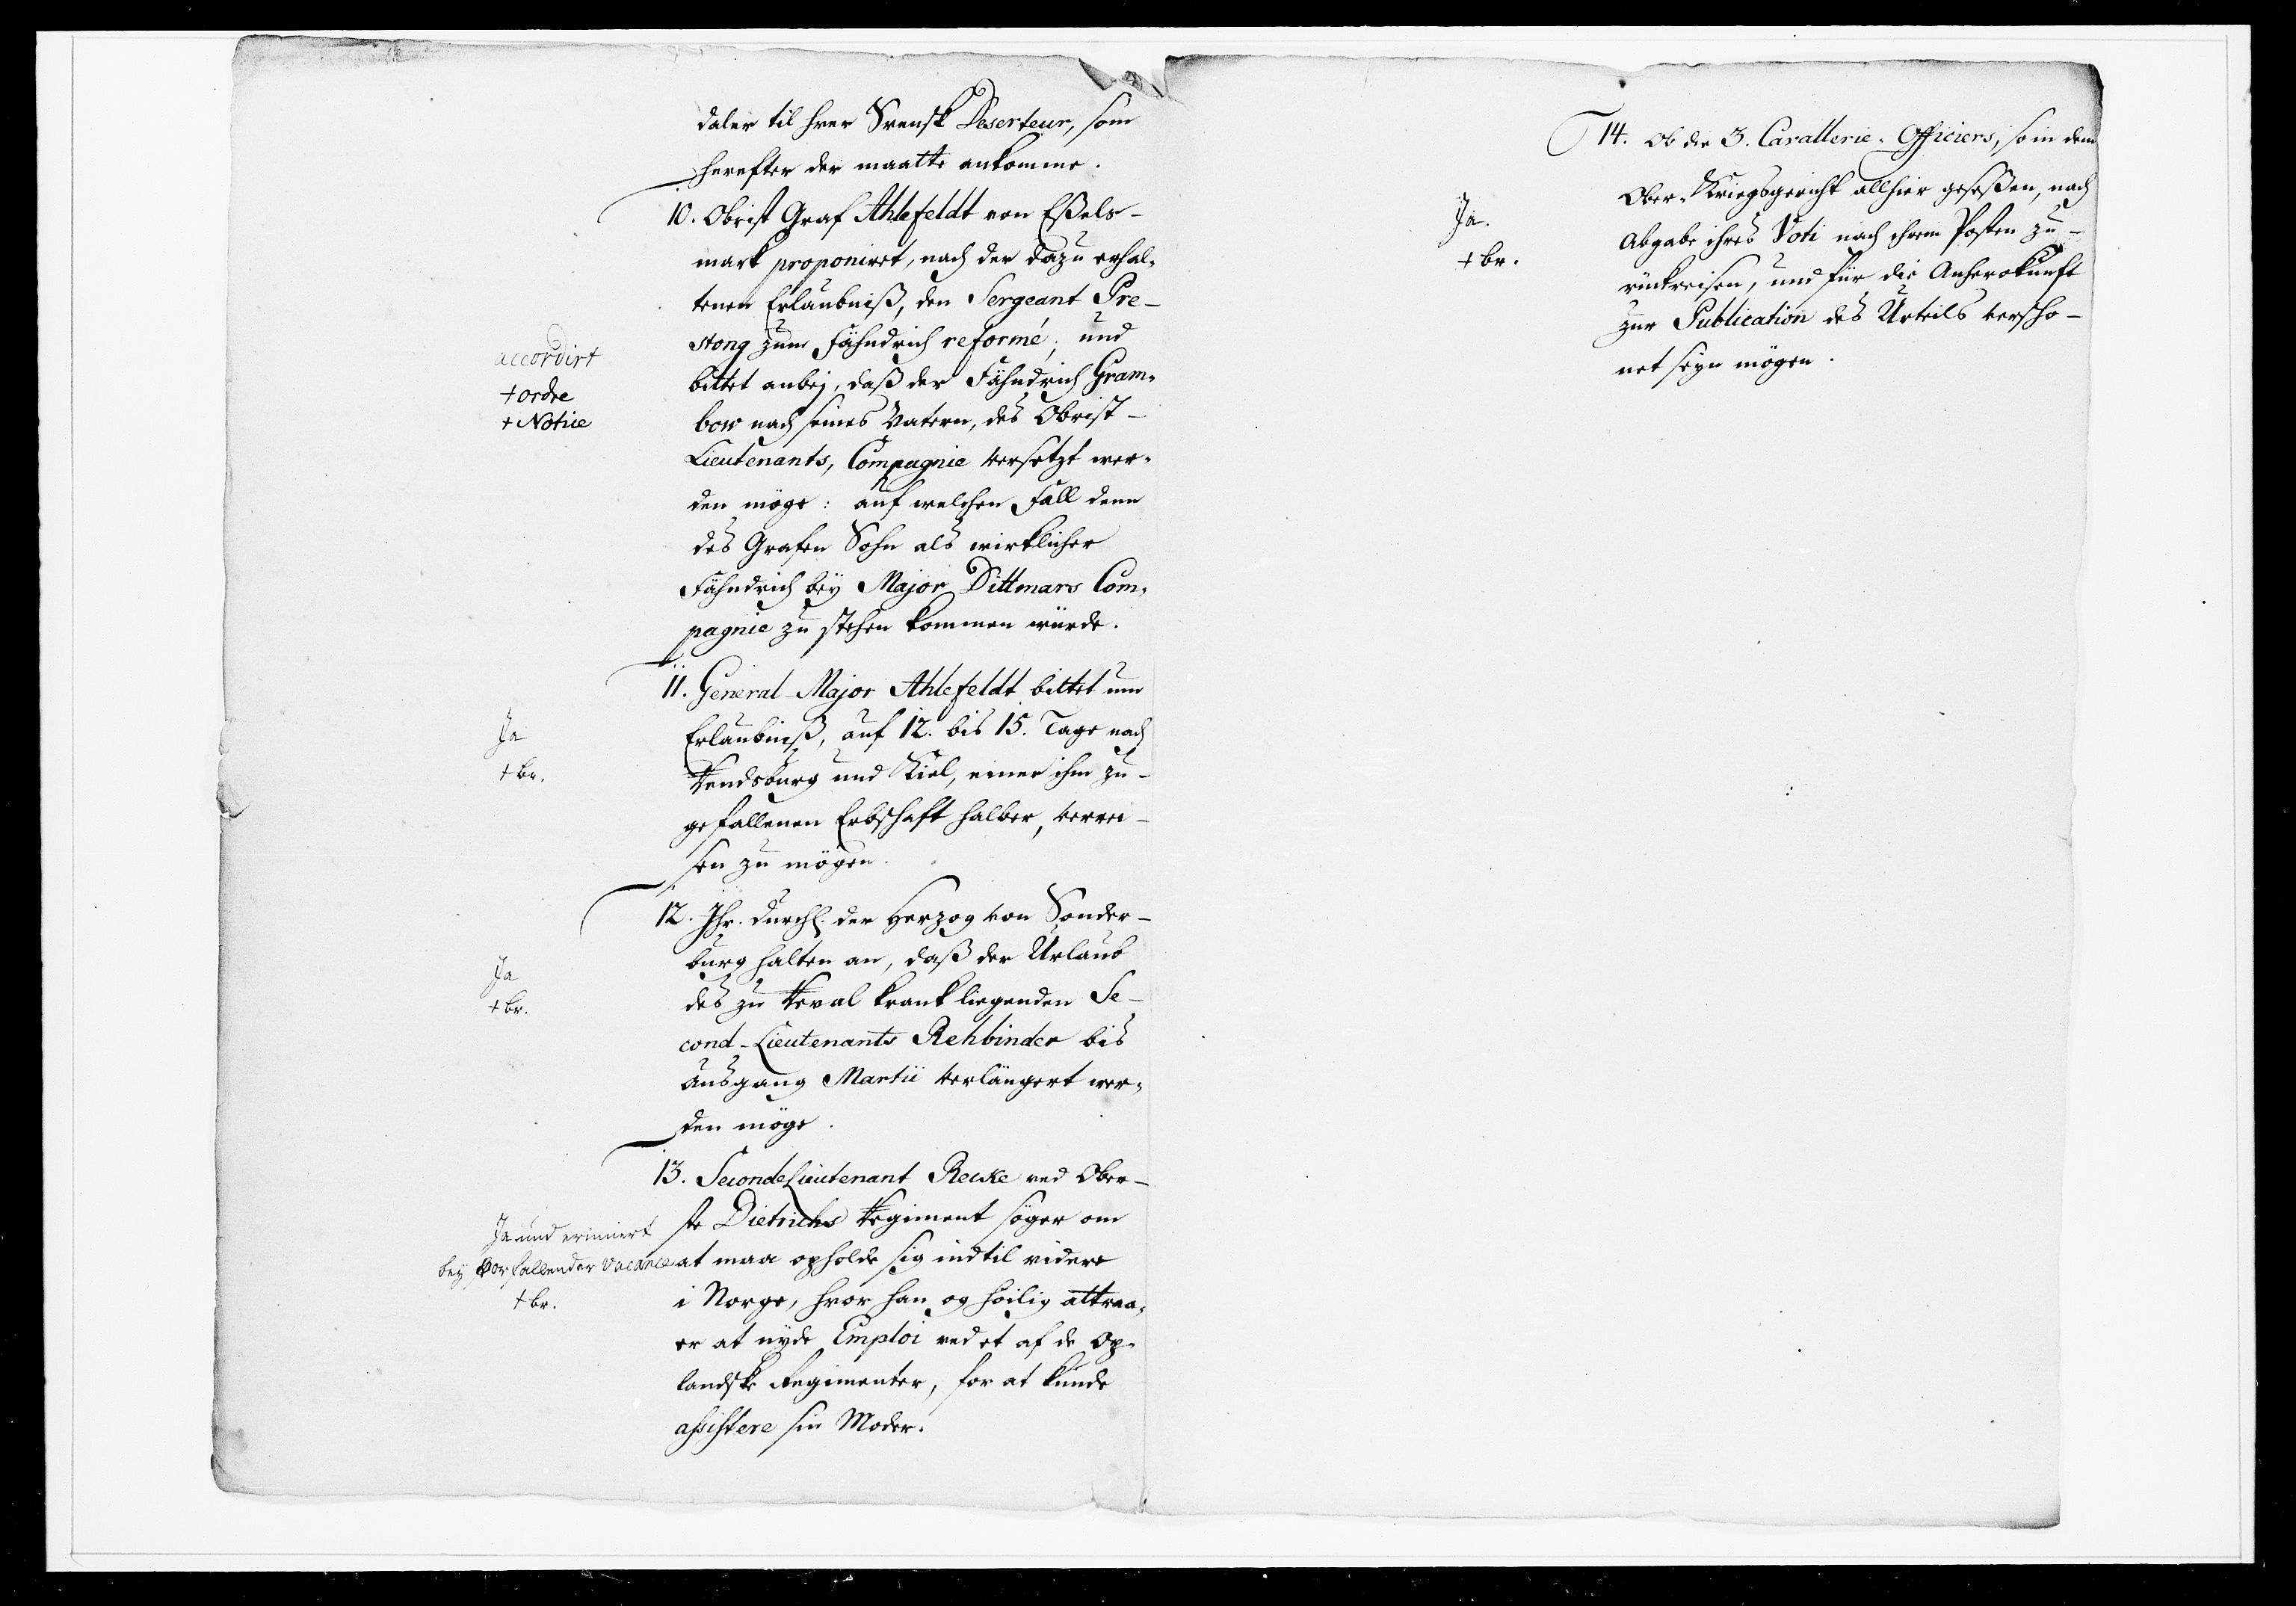 daler til hver Svensk Deserteur, som
herefter der maatte ankomme.
10. Obrist Graf Ahlefeldt von Eßels-
mark proponiret, nach der dazu erhal-
tenen Erlaubniß, den Sergeant Pre-
stong zum Fähndrich reformé; und
bittet anbeÿ, daß der Fähndrich Gram-
bow nach seines Vatern, des Obrist-
Lieutenants, Compagnie versetzt wer-
den möge: auf welchen Fall denn
des Grafen Sohn als wirklicher
Fähndrich beÿ Major Dittmars Com-
pagnie zu stehen kommen würde.
accordirt
+ ordre
+ Notice
11. General-Major Ahlefeldt bittet um
Erlaubniß, auf 12. bis 15. Tage nach
Rendsburg und Kiel, einer ihm zu-
gefallenen Erbschaft halber, verrei-
sen zu mögen.
Ja
+ br.
12. Ihr. Durchl. der Herzog von Sonder-
burg halten an, daß der Urlaub
des zu Reval krank liegenden Se-
cond-Lieutenants Rehbinder bis
Ausgang Martii verlängert wer-
den möge.
Ja
+ br.
13. SecondeLieutenant Recke ved Ober-
ste Dietrichs Regiment söger om
at maa opholde sig indtil videre
i Norge, hvor han og höilig attraa-
er at nÿde Emploi ved et af de Op-
landske Regimenter, for at kunde
assistere sin Moder.
Ja und erinnert
beÿ vorfallender Vacance
+ br.
14. Ob die 3. Cavallerie-Officiers, so in dem
Ober-Kriegsgericht allhier geseßen, nach
Abgabe ihres Voti nach ihrem Posten zu-
rückreisen, und für die Anherokunft
zur Publication des Urteils verscho-
net seÿn mögen.
Ja.
+ br.